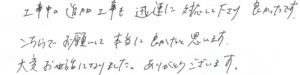 工事中の追加工事も迅速に対応して下さり良かったです
こちらでお願いして本当に良かったと思います。
大変お世話になりました。ありがとうございます。